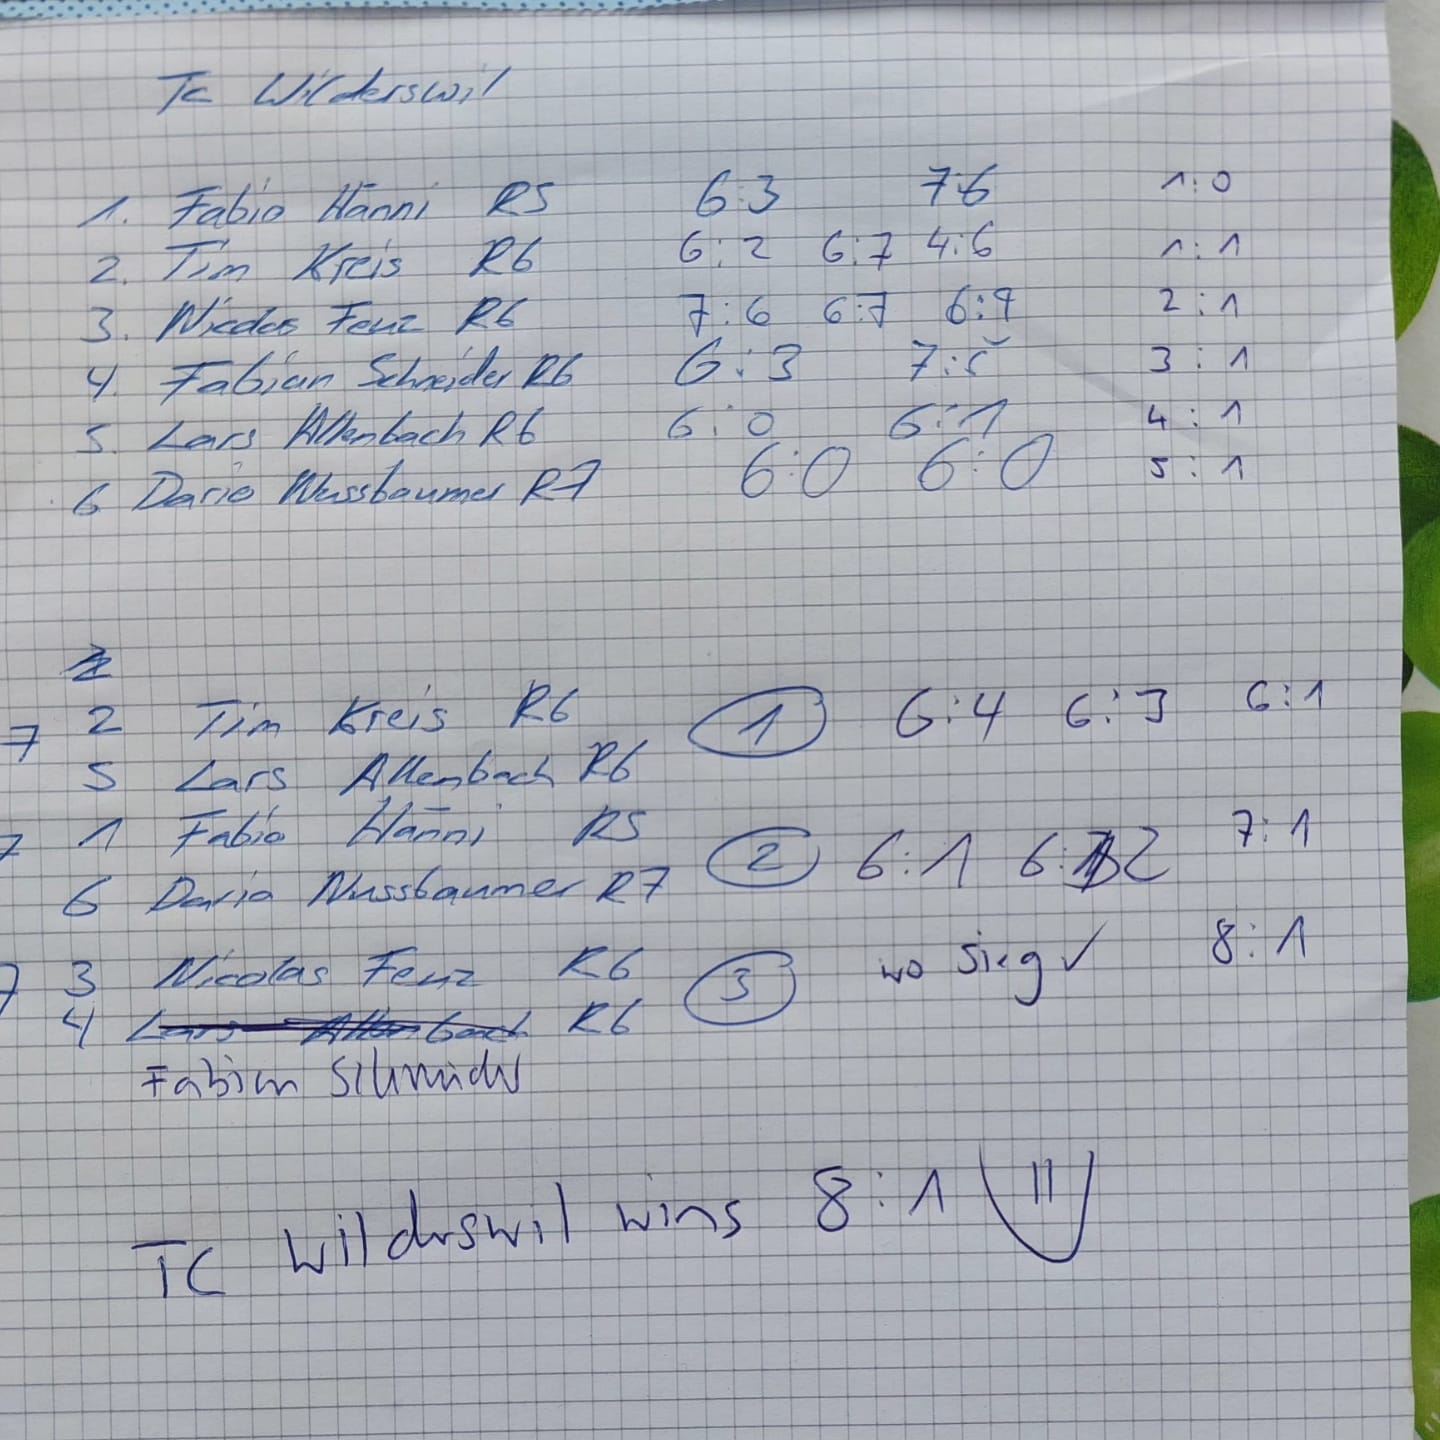 TC Wilderswil
1. Fabio Hänni R5 6:3 7:6 1:0
2. Tim Kreis R6 6:2 6:7 4:6 1:1
3. Nicolas Fenz R6 7:6 6:7 6:4 2:1
4. Fabian Schneider R6 6:3 7:5 3:1
5. Lars Allenbach R6 6:0 6:1 4:1
6 Dario Nussbaumer R7 6:0 6:0 5:1
7 2 Tim Kreis R6 1 6:4 6:3 6:1
5 Lars Allenbach R6
7 1 Fabio Hänni R5 2 6:1 6:2 7:1
6 Dario Nussbaumer R7
7 3 Nicolas Fenz R6 3 wo Sieg ✓ 8:1
4 Lars Allenbach R6
Fabian
TC Wilderswil wins 8:1